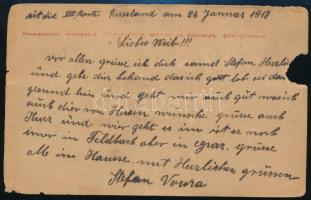 ist die III Karte Russland am 26 Januar 1918
Liebes Weib!!!
vor allen grüse ich dich samt Stefan Herzlich
und gebe dir bekand das ich gott lob sei dan
gesund bin und geht mir auch gut was ich
auch dier von Herzen wunsche grüse auch
und wier geht es im ist er noch
imer in Feldbach oder in Graz. grüse
alle im Hausse mit Herzlichen grüssen
Stefan